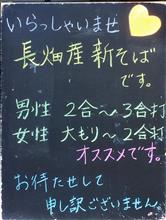 いらっしゃいませ
長畑産新そば
です。
男性 2合~3合打
女性 大もり~2合打
オススメです。
お待たせして
申し訳ございません。